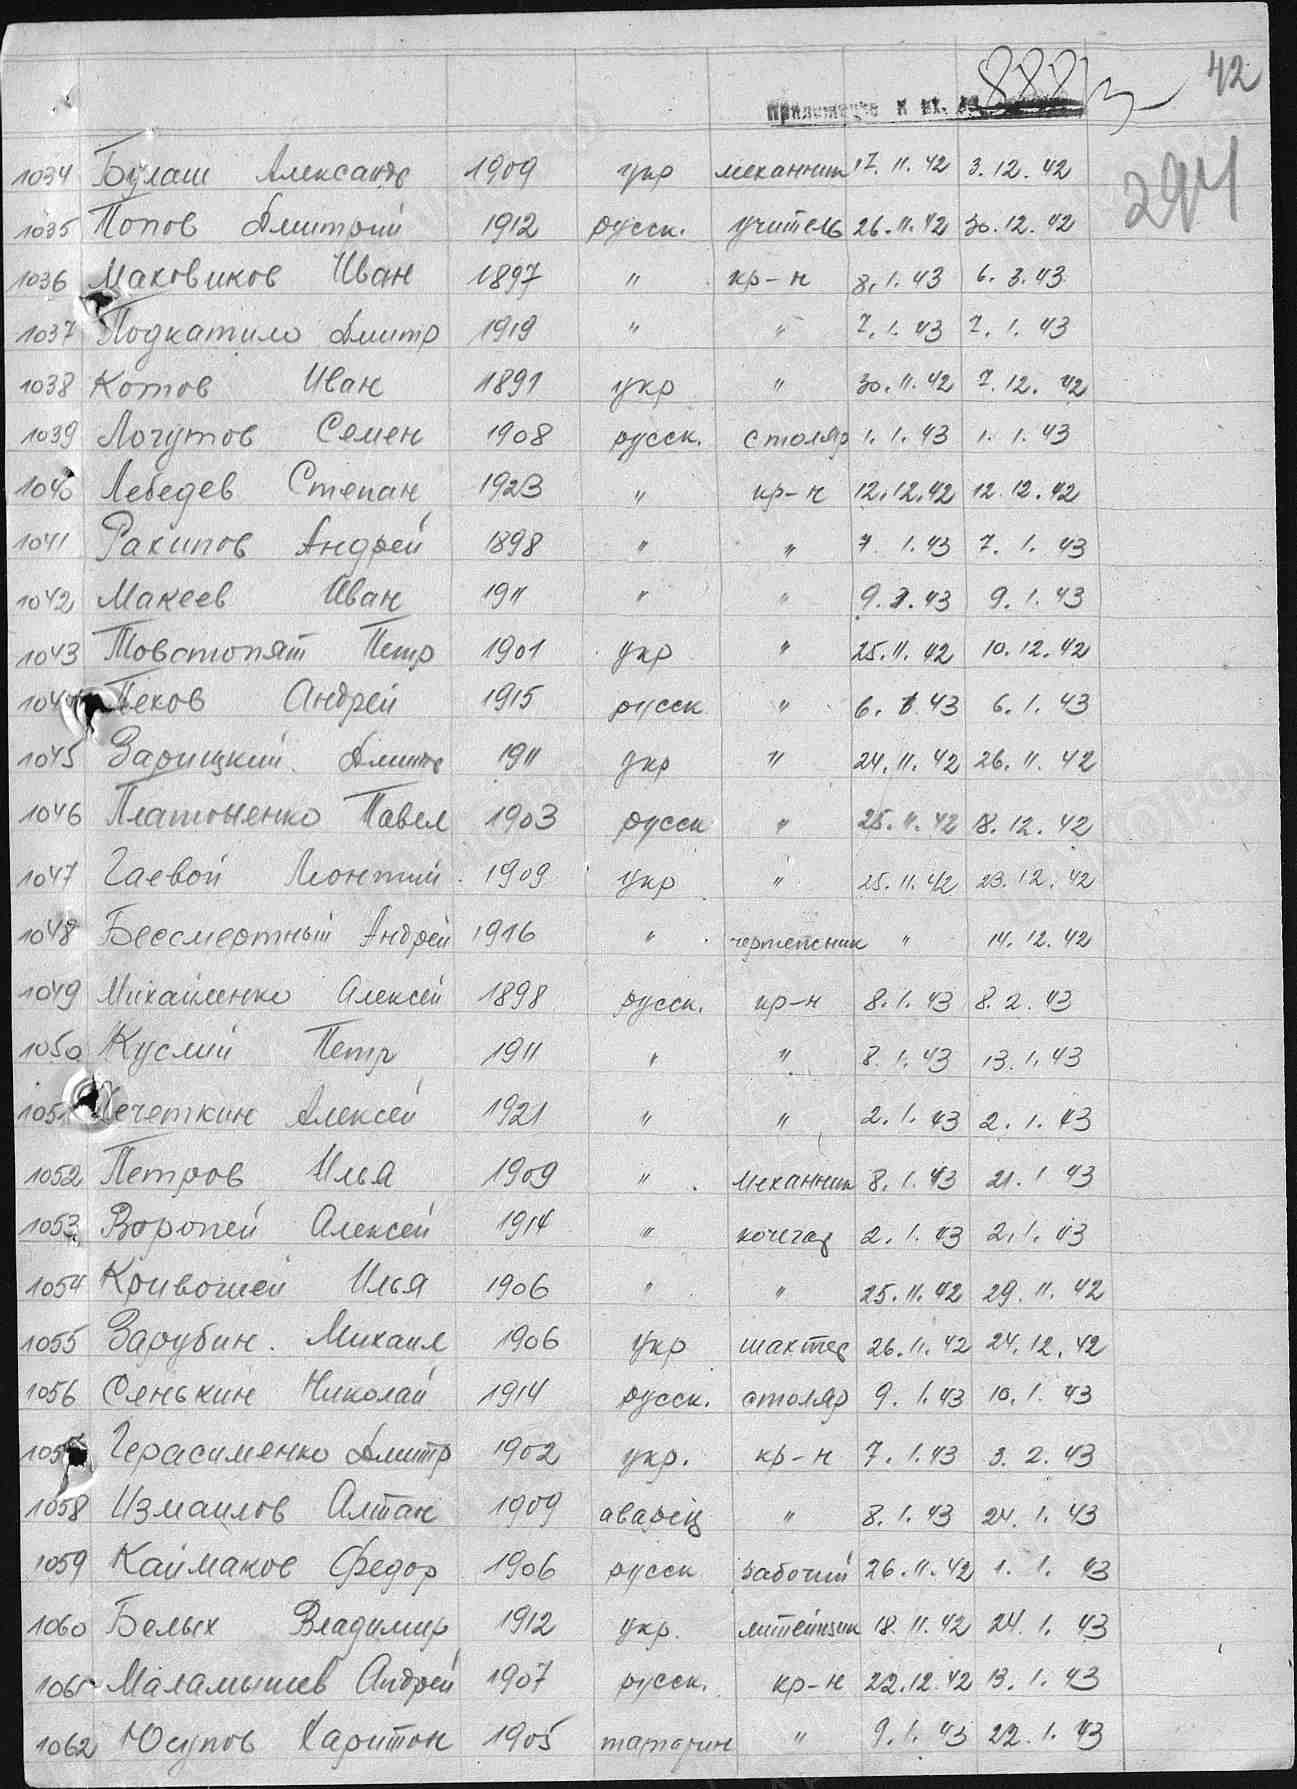 42
888
Приложение к вх. №
294
1034 Булаш Александр 1909 укр механник 17.11.42 3.12.42
1035 Попов Дмитрий 1912 русск. учитель 26.11.42 30.12.42
1036 Маховиков Иван 1897 " кр-н 8.1.43 6.3.43
1037 Подкатило Дмитр 1919 " " 7.1.43 7.1.43
1038 Котов Иван 1891 укр " 30.11.42 7.12.42
1039 Логутов Семен 1908 русск. столяр 1.1.43 1.1.43
1040 Лебедев Степан 1923 " кр-н 12.12.42 12.12.42
1041 Рахипов Андрей 1898 " " 7.1.43 7.1.43
1042 Макеев Иван 1911 " " 9.1.43 9.1.43
1043 Товстопят Петр 1901 укр " 25.11.42 10.12.42
1044 Пехов Андрей 1915 русск " 6.1.43 6.1.43
1045 Зарицкий Дмитр 1911 укр " 24.11.42 26.11.42
1046 Платоненко Павел 1903 русск " 25.11.42 18.12.42
1047 Гаевой Леонтий 1909 укр " 25.11.42 23.12.42
1048 Бессмертный Андрей 1916 " чертепсник " 14.12.42
1049 Михайленко Алексей 1898 русск. кр-н 8.1.43 8.2.43
1050 Куслий Петр 1911 " " 8.1.43 13.1.43
1051 Печеткин Алексей 1921 " " 2.1.43 2.1.43
1052 Петров Илья 1909 " механник 8.1.43 21.1.43
1053 Воропей Алексей 1914 " кочегар 2.1.43 2.1.43
1054 Кривошей Илья 1906 " " 25.11.42 29.11.42
1055 Зарубин Михаил 1906 укр шахтер 26.11.42 24.12.42
1056 Сянькин Николай 1914 русск. столяр 9.1.43 10.1.43
105 Герасименко Дмитр 1902 укр. кр-н 7.1.43 3.2.43
1058 Измаилов Алтан 1909 аварец " 8.1.43 24.1.43
1059 Каймаков Федор 1906 русск рабочий 26.11.42 1.1.43
1060 Белых Владимир 1912 укр. литейщик 18.11.42 24.1.43
1061 Маламышев Андрей 1907 русск. кр-н 22.12.42 13.1.43
1062 Юсупов Харитон 1905 татарин " 9.1.43 22.1.43